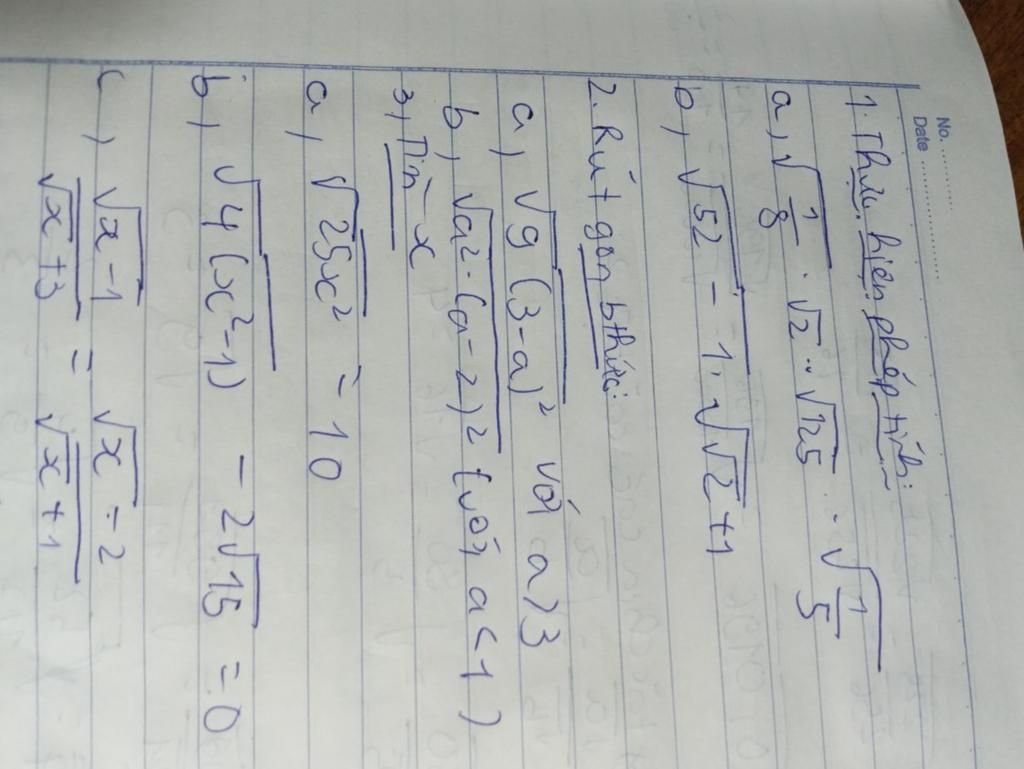 No. ............
Date ....................
1. Thực hiện phép tính:
a, √(1/8) . √2 . √125 . √(1/5)
b, √(√2 - 1) . √(√2 + 1)
2. Rút gọn bthức:
a, √(9(3-a)²) với a > 3
b, √(a² . (a-2)²) (với a < 1)
3, Tìm x
a, √(25x²) = 10
b, √(4(x²-1)) - 2√15 = 0
c, (√x - 1)/(√x + 3) = (√x - 2)/(√x + 1)